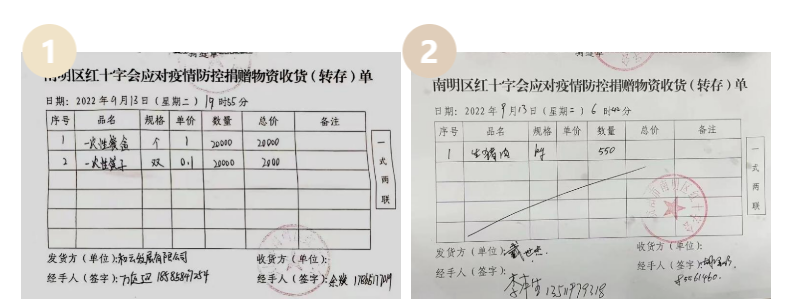 1
南明区红十字会应对疫情防控捐赠物资收货(转存)单
日期: 2022年9月13日(星期二)19时55分
序号 品名 规格 单价 数量 总价 备注
1 一次性餐盒 个 1 20000 20000
2 一次性筷子 双 0.1 20000 2000
一式两联
发货方(单位): 发展有限公司 收货方(单位):
经手人(签字): 经手人(签字):
2
南明区红十字会应对疫情防控捐赠物资收货(转存)单
日期: 2022年9月13日(星期二)6时 分
序号 品名 规格 单价 数量 总价 备注
1 生猪肉 550
一式两联
发货方(单位): 收货方(单位):
经手人(签字): 13511979318 经手人(签字):